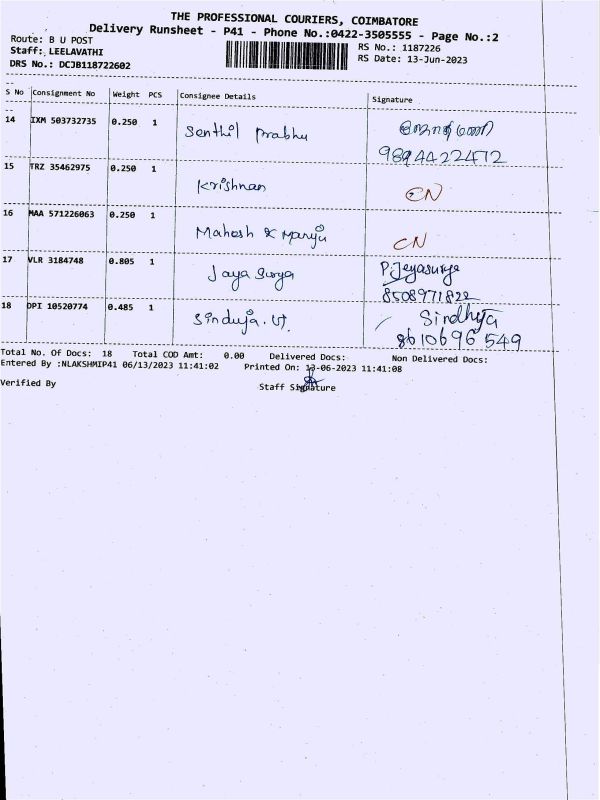 THE PROFESSIONAL COURIERS, COIMBATORE
Delivery Runsheet - P41 - Phone No.:0422-3505555 - Page No.:2
Route: B U POST
RS No.: 1187226
Staff: LEELAVATHI
RS Date: 13-Jun-2023
DRS No.: DCJB118722602
S No Consignment No Weight PCS Consignee Details Signature
14 IXM 503732735 0.250 1 Senthil Prabhu
9894422472
15 TRZ 35462975 0.250 1 Krishnan CN
16 MAA 571226063 0.250 1 Mahesh & Manju CN
17 VLR 3184748 0.805 1 Jaya Surya P. Jeyasurya
8508971822
18 DPI 10520774 0.485 1 Sinduja. Sindhya
8610696549
Total No. Of Docs: 18 Total COD Amt: 0.00 Delivered Docs: Non Delivered Docs:
Entered By :NLAKSHMIP41 06/13/2023 11:41:02 Printed On: 13-06-2023 11:41:08
Verified By Staff Signature